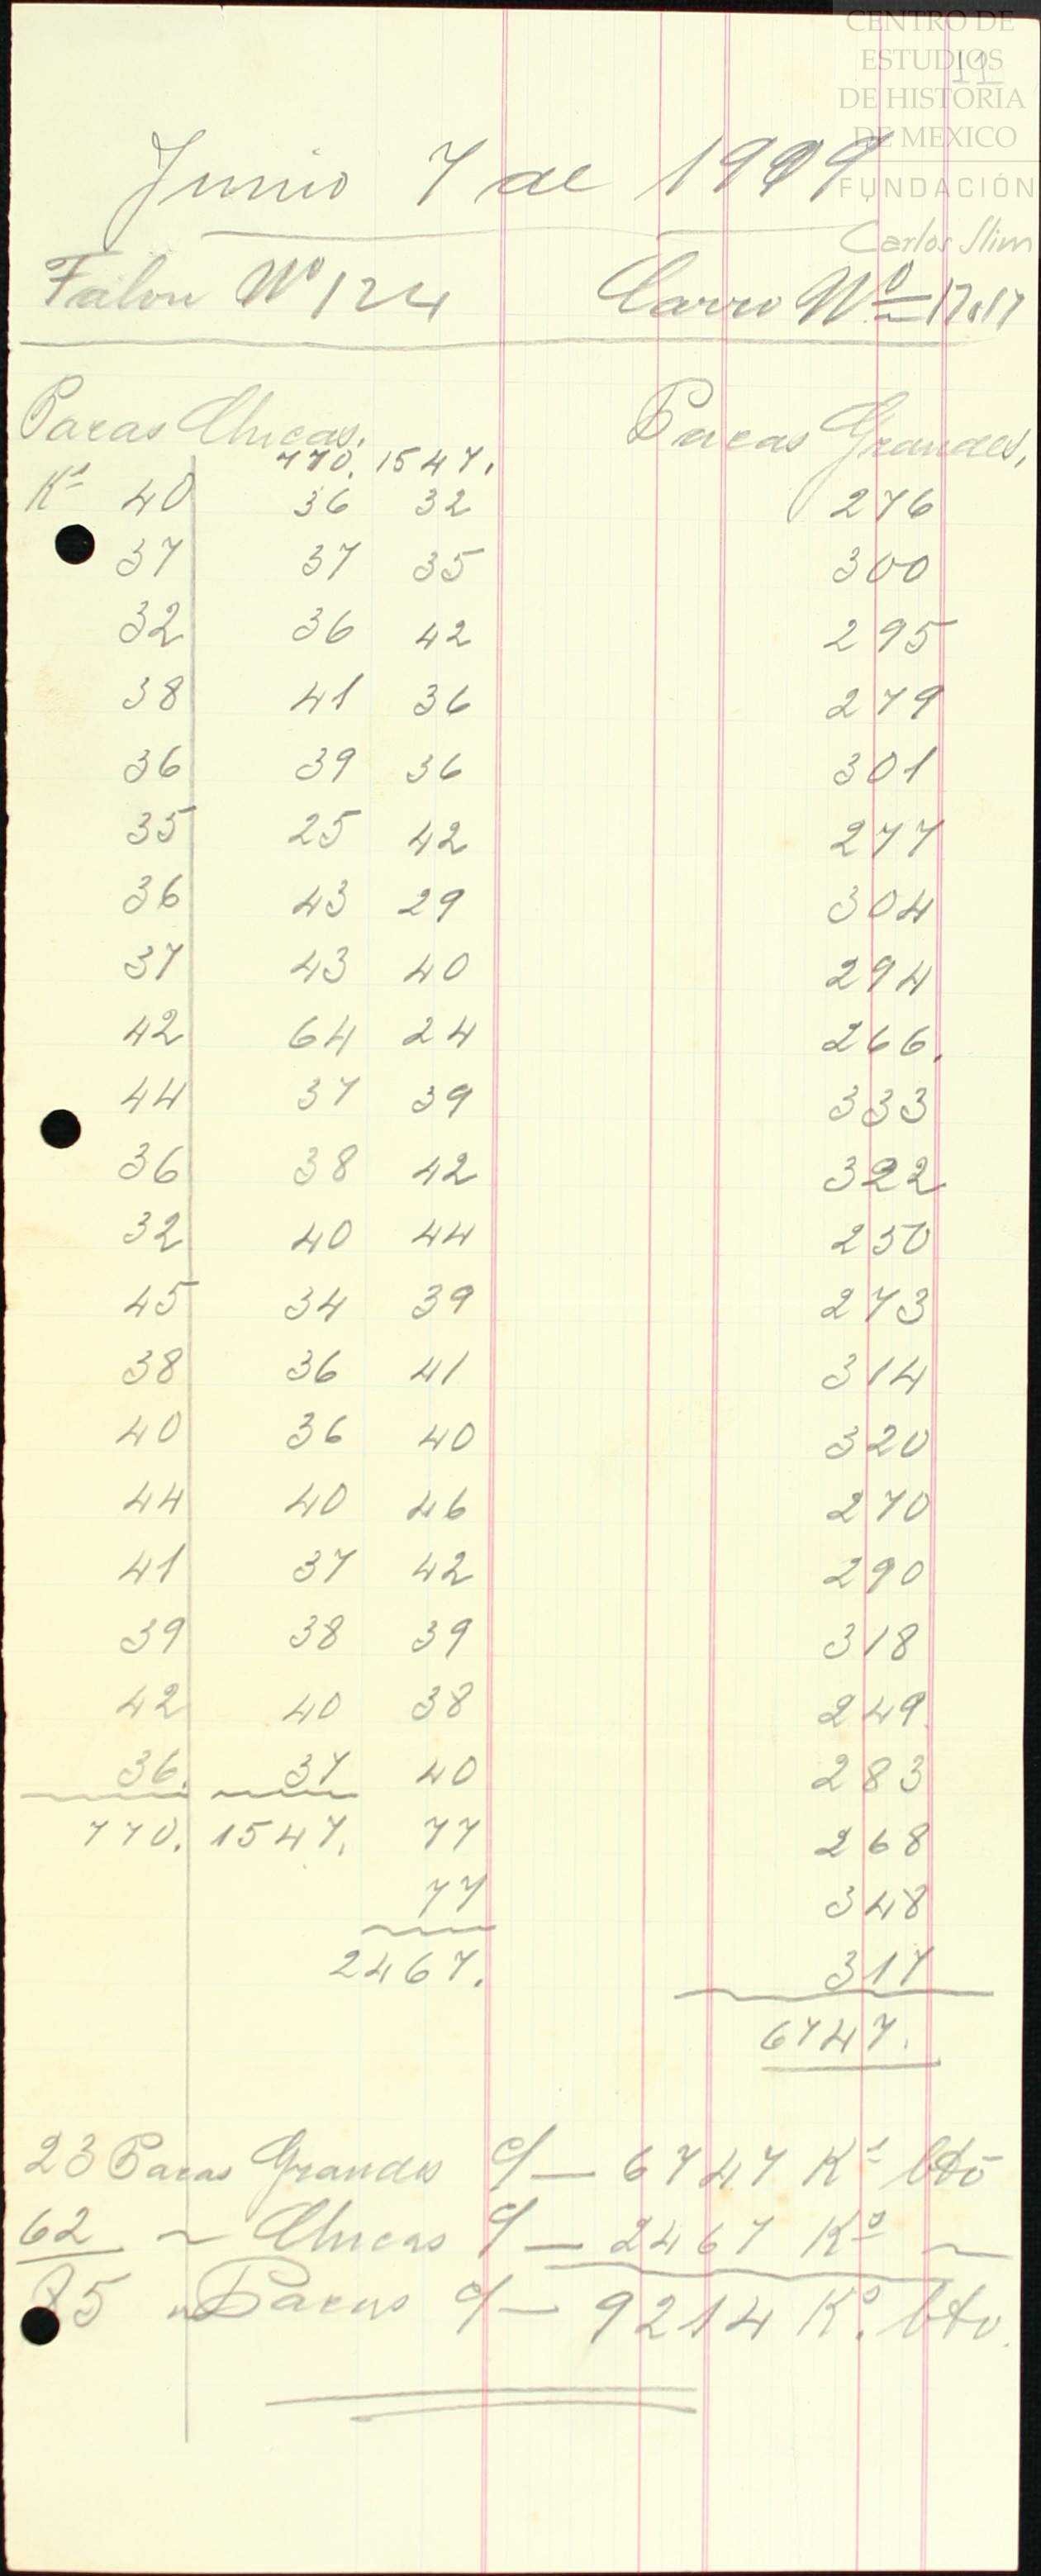 CENTRO DE
ESTUDIOS
DE HISTORIA
DE MEXICO
FUNDACIÓN
Carlos Slim
11
Junio 7 de 1909
Talon Nº 124 Carro Nº 17017
Pacas Chicas. Pacas Grandes.
770. 1547.
Ks 40 36 32 276
37 37 35 300
32 36 42 295
38 41 36 279
36 39 36 301
35 25 42 277
36 43 29 304
37 43 40 294
42 64 24 266.
44 37 39 333
36 38 42 322
32 40 44 250
45 34 39 273
38 36 41 314
40 36 40 320
44 40 46 270
41 37 42 290
39 38 39 318
42 40 38 249.
36. 37 40 283
770. 1547. 77 268
77 348
2467. 317
6747.
23 Pacas Grandes c/ — 6747 Ks bto
62 ~ Chicas c/ — 2467 Ks ~
85 Pacas c/ — 9214 Ko. bto.